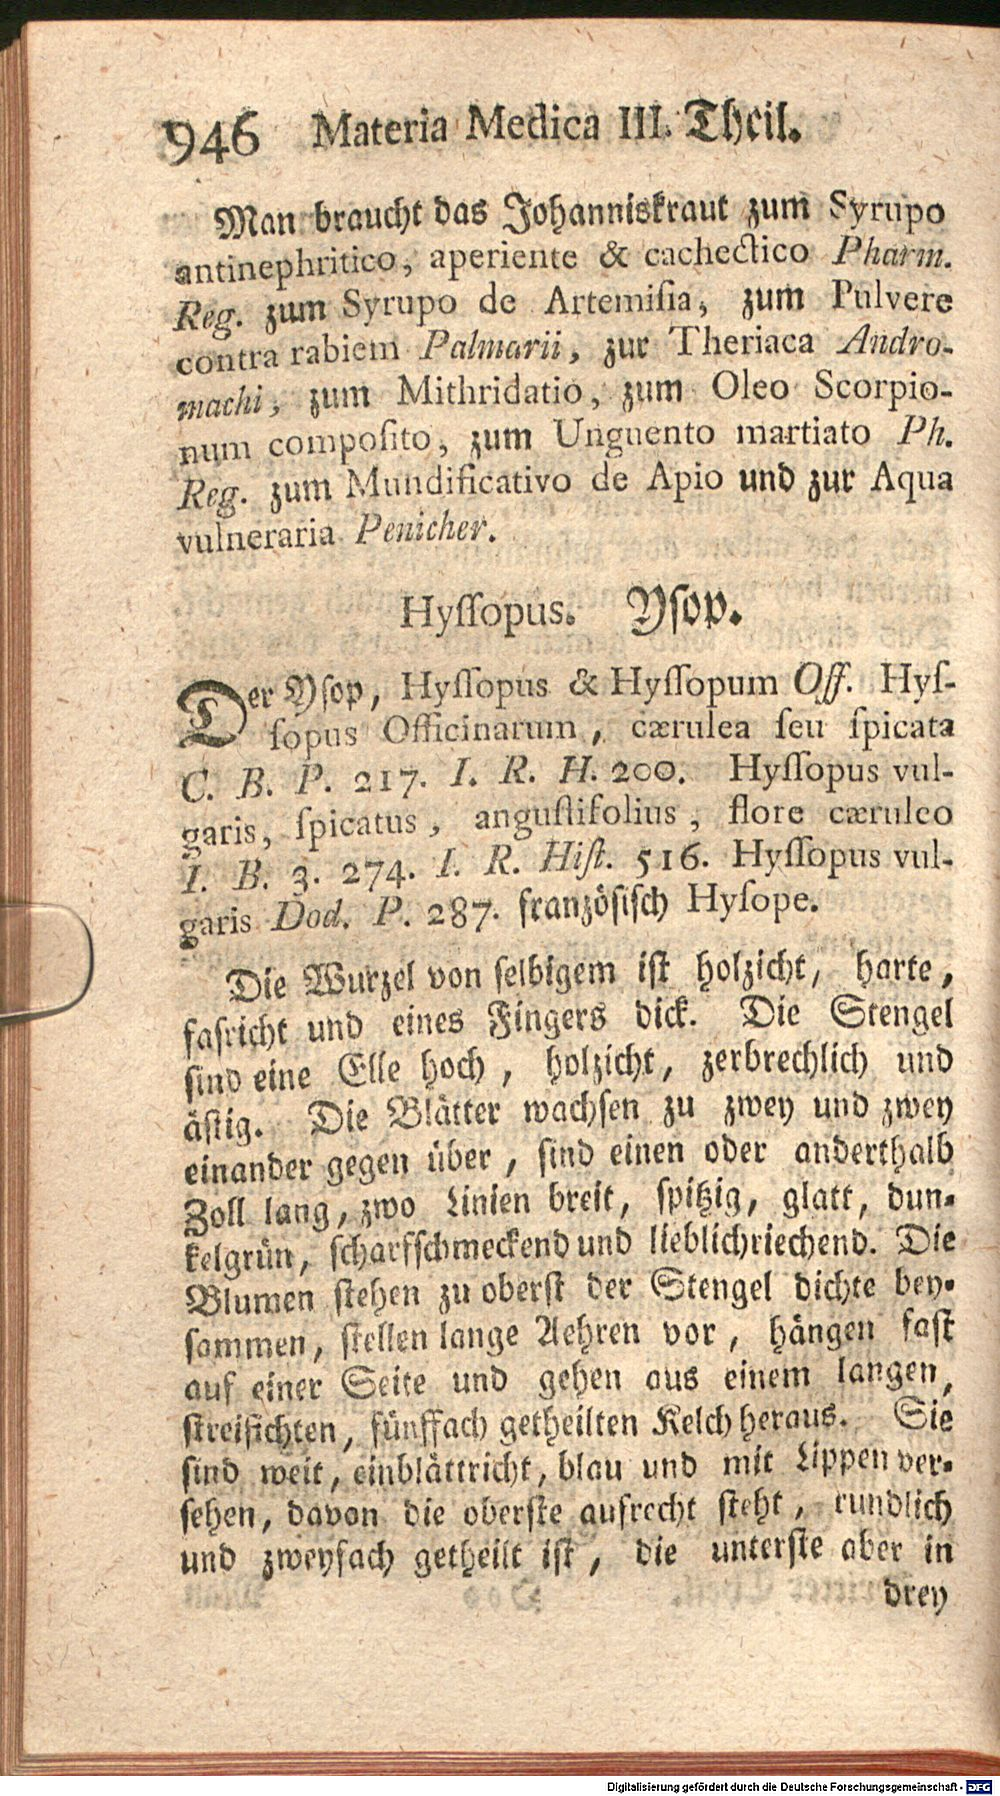 946 Materia Medica III. Theil.
Man braucht das Johanniskraut zum Syrupo
antinephritico, aperiente & cachectico Pharm.
Reg. zum Syrupo de Artemiſia, zum Pulvere
contra rabiem Palmarii, zur Theriaca Andro-
machi, zum Mithridatio, zum Oleo Scorpio-
num compoſito, zum Unguento martiato Ph.
Reg. zum Mundificativo de Apio und zur Aqua
vulneraria Penicher.
Hyſſopus. Yſop.
Der Yſop, Hyſſopus & Hyſſopum Off. Hyſ-
ſopus Officinarum, cærulea ſeu ſpicata
C. B. P. 217. I. R. H. 200. Hyſſopus vul-
garis, ſpicatus, anguſtifolius, flore cæruleo
I. B. 3. 274. I. R. Hiſt. 516. Hyſſopus vul-
garis Dod. P. 287. franzöſiſch Hyſope.
Die Wurzel von ſelbigem iſt holzicht, harte,
faſricht und eines Fingers dick. Die Stengel
ſind eine Elle hoch, holzicht, zerbrechlich und
äſtig. Die Blätter wachſen zu zwey und zwey
einander gegen über, ſind einen oder anderthalb
Zoll lang, zwo Linien breit, ſpitzig, glatt, dun-
kelgrün, ſcharfſchmeckend und lieblichriechend. Die
Blumen ſtehen zu oberſt der Stengel dichte bey-
ſammen, ſtellen lange Aehren vor, hängen faſt
auf einer Seite und gehen aus einem langen,
ſtreifichten, fünffach getheilten Kelch heraus. Sie
ſind weit, einblättricht, blau und mit Lippen ver-
ſehen, davon die oberſte aufrecht ſteht, rundlich
und zweyfach getheilt iſt, die unterſte aber in
drey
Digitalisierung gefördert durch die Deutsche Forschungsgemeinschaft - DFG